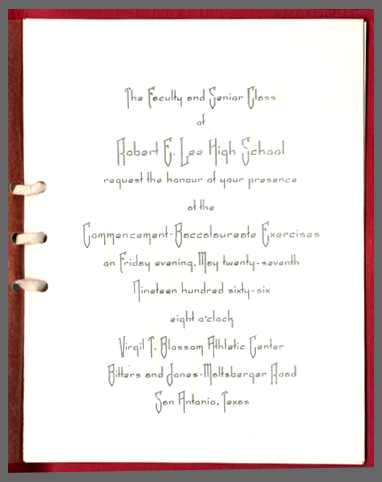 The Faculty and Senior Class
of
Robert E. Lee High School
request the honour of your presence
at the
Commencement-Baccalaureate Exercises
on Friday evening, May twenty-seventh
Nineteen hundred sixty-six
eight o'clock
Virgil T. Blossom Athletic Center
Bitters and Jones-Maltsberger Road
San Antonio, Texas